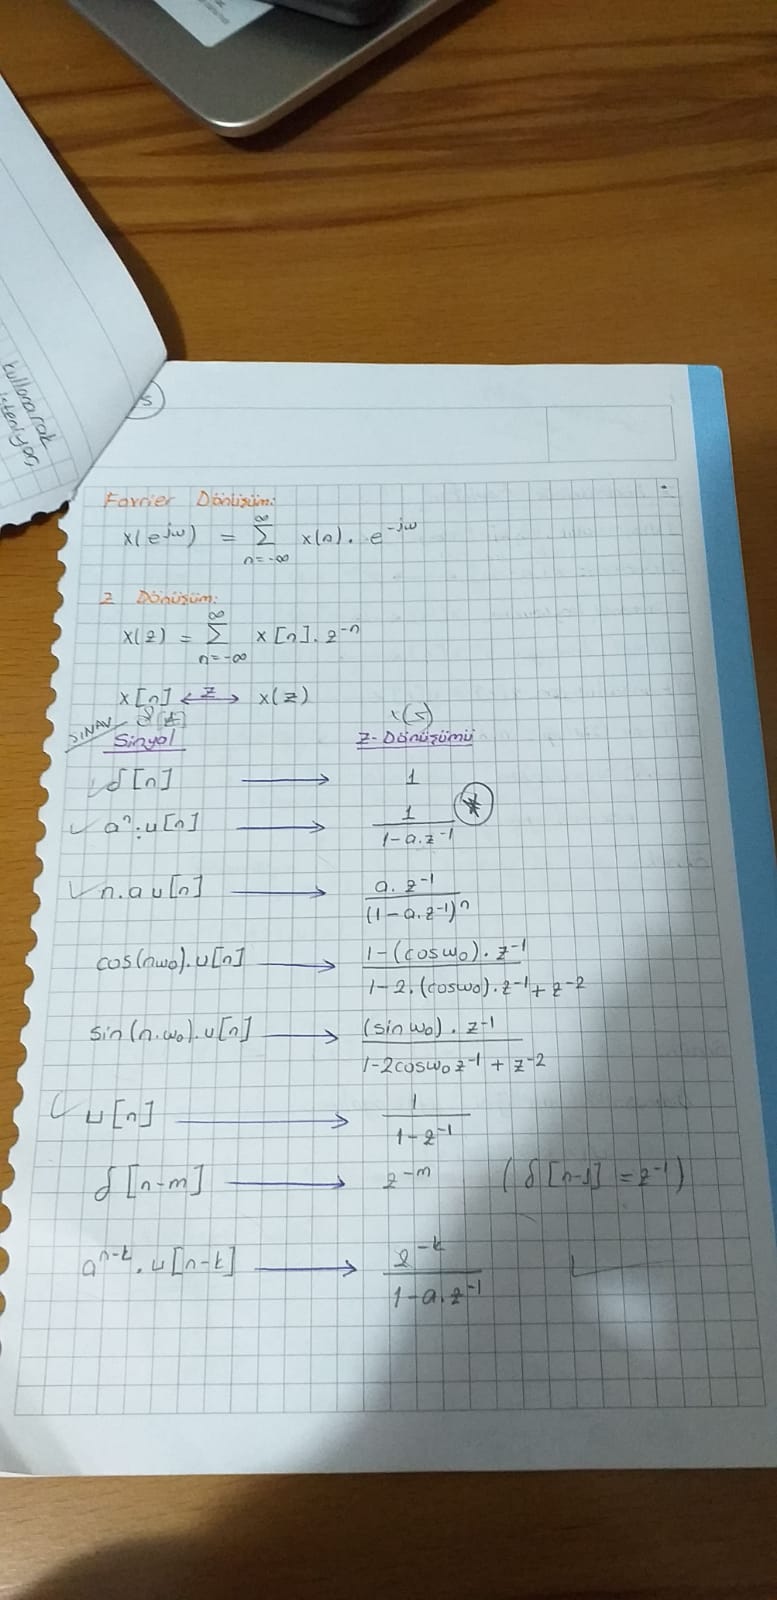 kullanarak
isteniyor,
5
Forrier Dönüşüm:
x(e^jω) = ∑_{n=-∞}^{∞} x(n). e^-jω
z Dönüşüm:
x(z) = ∑_{n=-∞}^{∞} x[n]. z^-n
x[n] <-z-> x(z)
SINAV
Sinyal Z-Dönüşümü
δ[n] → 1
a^n.u[n] → 1/(1-a.z^-1) *
n.a u[n] → a.z^-1/(1-a.z^-1)^n
cos(nω₀).u[n] → 1-(cosω₀).z^-1/(1-2.(cosω₀).z^-1+z^-2)
sin(n.ω₀).u[n] → (sinω₀).z^-1/(1-2cosω₀z^-1+z^-2)
u[n] → 1/(1-z^-1)
δ[n-m] → z^-m (δ[n-1]=z^-1)
a^n-k.u[n-k] → z^-k/(1-a.z^-1)